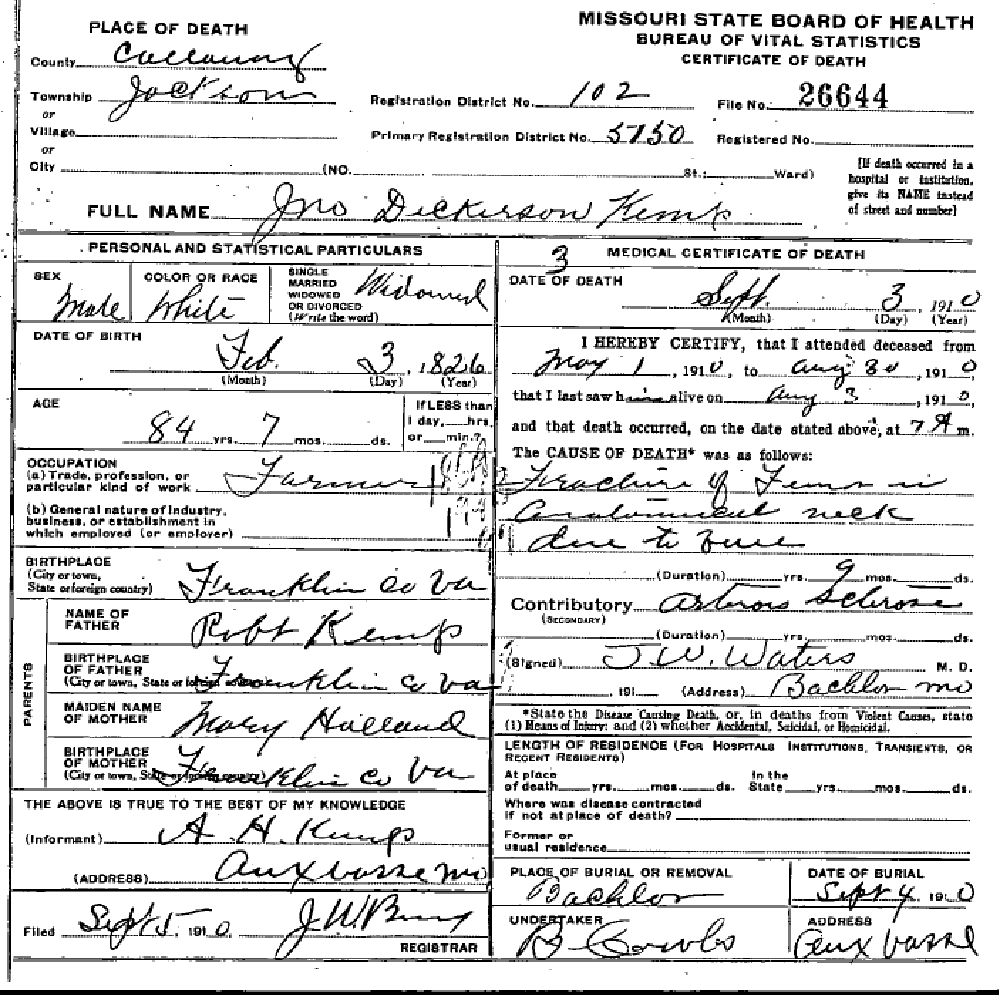 MISSOURI STATE BOARD OF HEALTH
BUREAU OF VITAL STATISTICS
CERTIFICATE OF DEATH
PLACE OF DEATH
County Callaway
Township Jackson
or
Village
or
City (NO. St.; Ward)
Registration District No. 102 File No. 26644
Primary Registration District No. 5150 Registered No.
[If death occurred in a hospital or institution, give its NAME instead of street and number]
FULL NAME Jno Dickerson Kemp
PERSONAL AND STATISTICAL PARTICULARS
SEX Male
COLOR OR RACE White
SINGLE MARRIED WIDOWED OR DIVORCED (Write the word) Widowed
DATE OF BIRTH Feb. 3, 1826
(Month) (Day) (Year)
AGE 84 yrs. 7 mos. ds.
If LESS than 1 day, hrs. or min.?
OCCUPATION
(a) Trade, profession, or particular kind of work Farmer
(b) General nature of industry, business, or establishment in which employed (or employer)
BIRTHPLACE
(City or town, State or foreign country) Franklin Co Va
PARENTS
NAME OF FATHER Robt Kemp
BIRTHPLACE OF FATHER
(City or town, State or foreign country) Franklin Co Va
MAIDEN NAME OF MOTHER Mary Holland
BIRTHPLACE OF MOTHER
(City or town, State or foreign country) Franklin Co Va
THE ABOVE IS TRUE TO THE BEST OF MY KNOWLEDGE
(Informant) A H Kemp
(ADDRESS) Auxvasse Mo
Filed Sept 5. 1910 J. W.
REGISTRAR
3 MEDICAL CERTIFICATE OF DEATH
DATE OF DEATH Sept. 3, 1910
(Month) (Day) (Year)
I HEREBY CERTIFY, that I attended deceased from
May 1, 1910, to Aug 30, 1910,
that I last saw him alive on Aug 3, 1910,
and that death occurred, on the date stated above, at 7 A m.
The CAUSE OF DEATH* was as follows:
Fracture of Femur in
Anatomical neck
due to
(Duration) yrs. 9 mos. ds.
Contributory
(SECONDARY)
(Duration) yrs. mos. ds.
(Signed) J. W. Waters M. D.
, 191 (Address) Bachlor Mo
*State the Disease Causing Death, or, in deaths from Violent Causes, state
(1) Means of Injury; and (2) whether Accidental, Suicidal, or Homicidal.
LENGTH OF RESIDENCE (FOR HOSPITALS INSTITUTIONS, TRANSIENTS, OR RECENT RESIDENTS)
At place of death yrs. mos. ds. In the State yrs. mos. ds.
Where was disease contracted
if not at place of death?
Former or
usual residence
PLACE OF BURIAL OR REMOVAL Bachlor
DATE OF BURIAL Sept 4, 1910
UNDERTAKER
ADDRESS Auxvasse